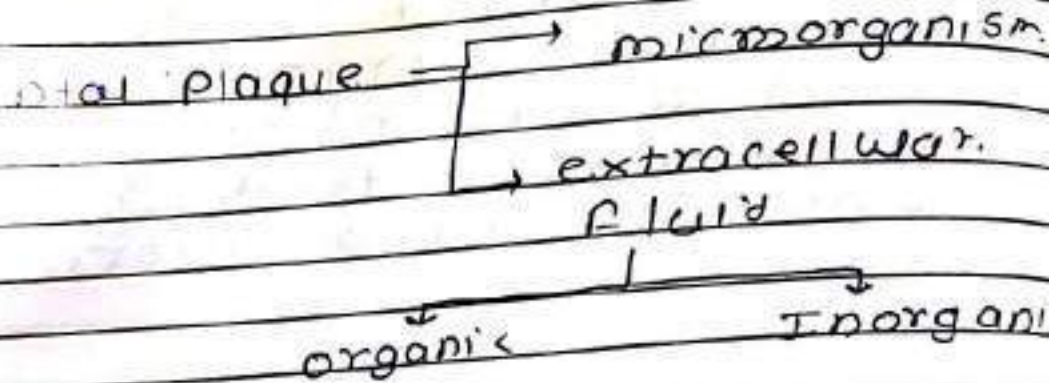 ntal plaque → micmorganism.
→ extracellular.
fluid
organic Inorgani